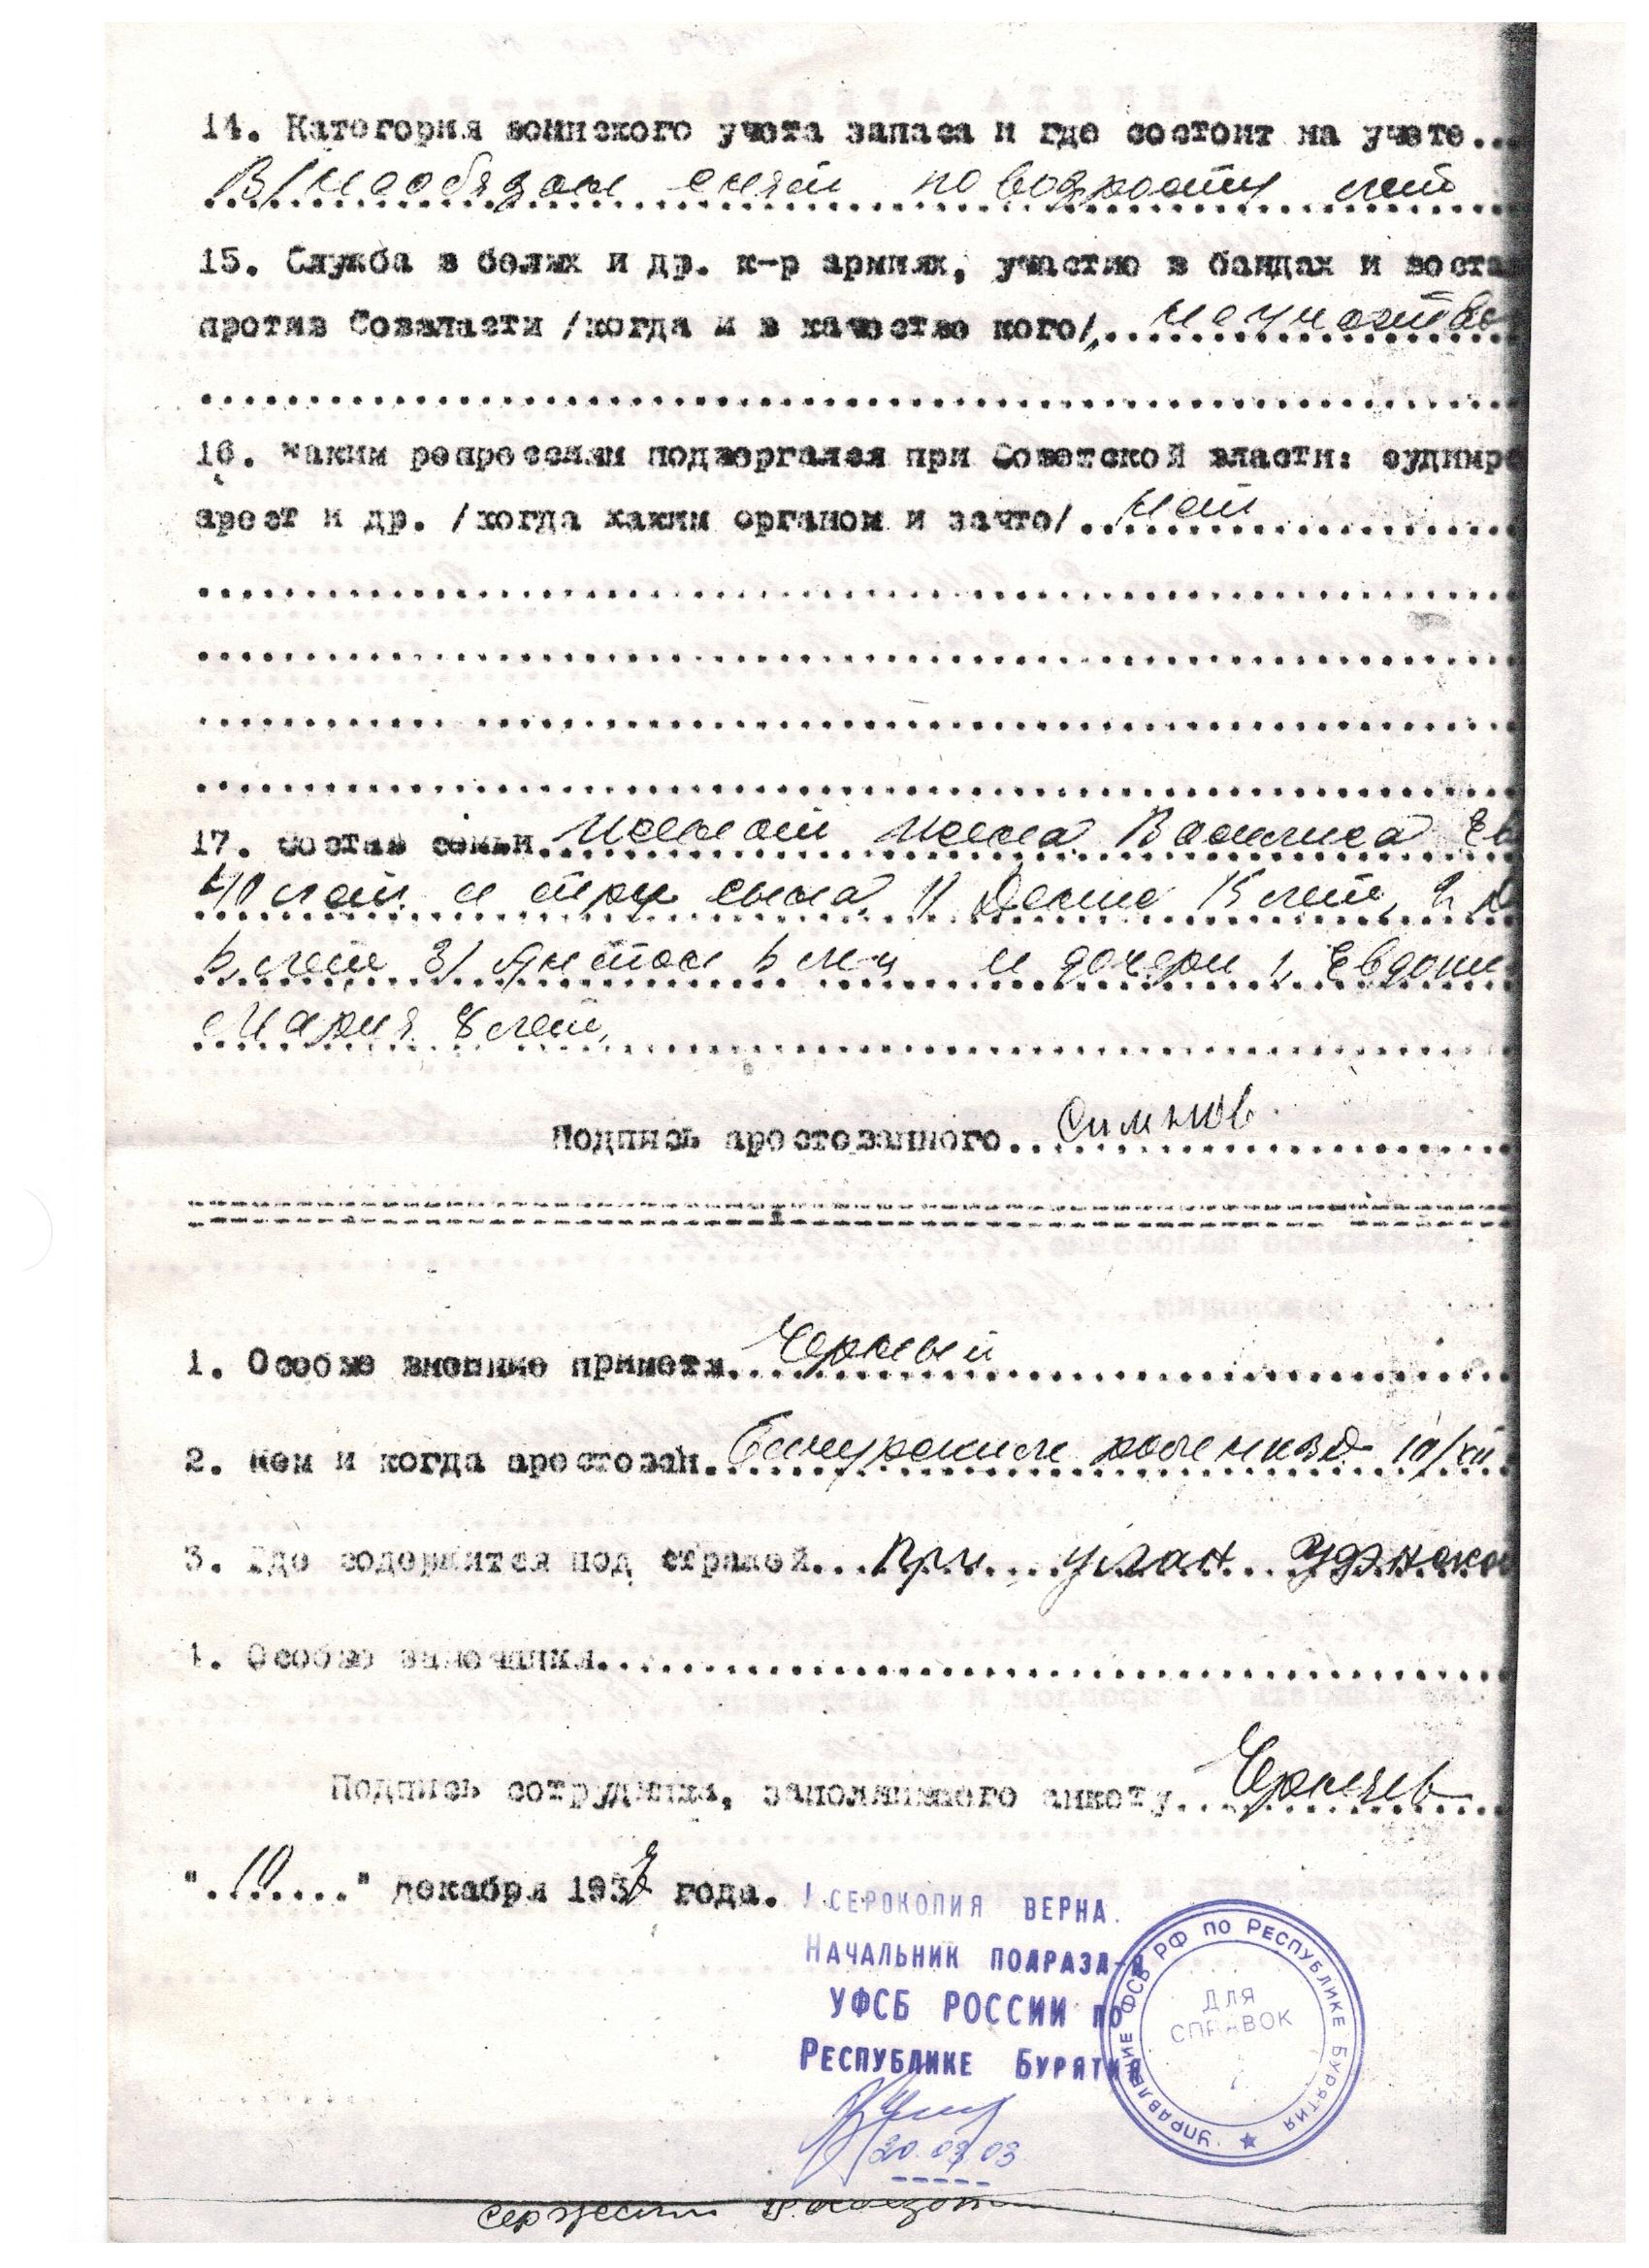 14. Категория воинского учета запаса и где состоит на учете...
В/необязан снят по возрасту лет
15. Служба в белых и др. к-р армиях, участие в бандах и воста
против Соввласти /когда и в качестве кого/... не участво
16. Каким репрессиям подвергался при Советской власти: судимо
арест и др. /когда каким органом и зачто/. нет
17. Состав семьи. Женат жена Василиса Ев
40 лет и три сына 1) 15 лет, 2,
6 лет 3/ Антон 6 м-ц и дочери 1, Евдоки
Мария 8 лет,
Подпись арестованного.. Симнов
1. Особые внешние приметы.. Черный
2. Кем и когда арестован. Бичурским 10/XII
3. Где содержится под стражей... При.. Улан.. Удэнско
4. Особые замечания...
Подпись сотрудника, заполнившего анкету..
"10" декабря 1937 года.
КСЕРОКОПИЯ ВЕРНА.
НАЧАЛЬНИК ПОДРАЗД-Я
УФСБ РОССИИ ПО
РЕСПУБЛИКЕ БУРЯТИЯ
УПРАВЛЕНИЕ ФСБ РФ ПО РЕСПУБЛИКЕ БУРЯТИЯ
ДЛЯ
СПРАВОК
20.03.03
сержант